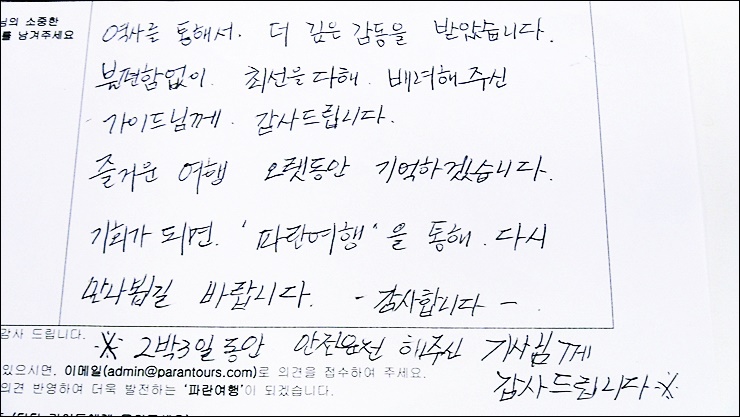 님의 소중한
를 남겨주세요
역사를 통해서. 더 깊은 감동을 받았습니다.
불편함없이. 최선을 다해. 배려해주신
가이드님께. 감사드립니다.
즐거운 여행 오랫동안 기억하겠습니다.
기회가 되면. '파란여행'을 통해. 다시
만나뵙길 바랍니다. - 감사합니다 -
감사 드립니다.
※ 2박3일동안 안전운전 해주신 기사님께
있으시면, 이메일(admin@parantours.com)로 의견을 접수하여 주세요.
의견 반영하여 더욱 발전하는 '파란여행'이 되겠습니다.
감사드립니다 ※